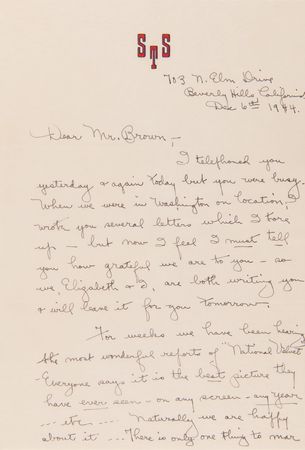 STS
703 N. Elm Drive
Beverly Hills California
Dec 6th 1944.
Dear Mr. Brown,-
I telephoned you
yesterday & again today but you were busy.
When we were in Washington on location, I
wrote you several letters which I tore
up — but now I feel I must tell
you how grateful we are to you — so
we, Elizabeth & I, are both writing you
& will leave it for you tomorrow.
For weeks we have been hearing
the most wonderful reports of "National Velvet
Everyone says it is the best picture they
have ever seen - on any screen - any year
... etc .... Naturally we are happy
about it ... There is only one thing to mar